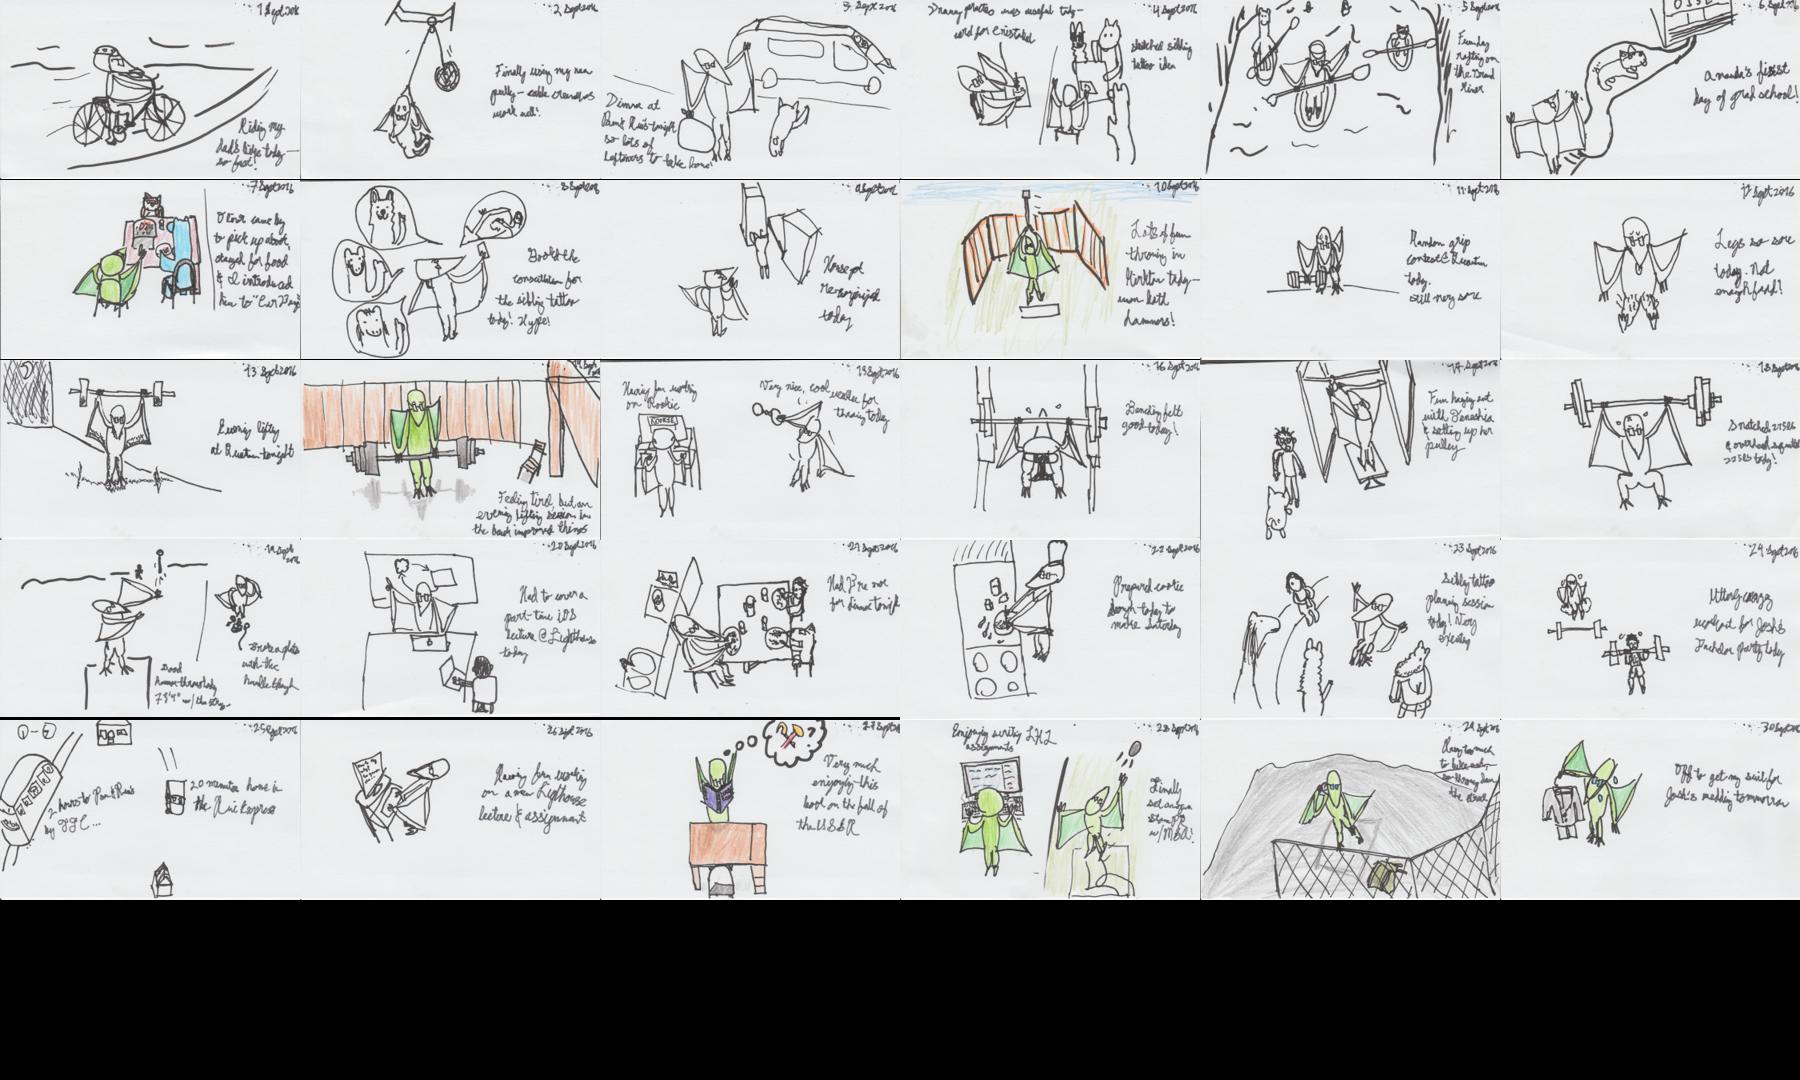 1 Sept 2016
Riding my
dad's bike today—
so fast!
2 Sept 2016
Finally using my new
pulley — cable
work well!
3 Sept 2016
Dinner at
tonight
so lots of
leftovers to take home!
4 Sept 2016
was useful today—
card for
sketched sibling
tattoo idea
5 Sept 2016
Fun day
rafting on
the Grand
River
6 Sept 2016
Amanda's first
day of grad school!
7 Sept 2016
came by
to pick up
stayed for food
& I introduced
him to "
8 Sept 2016
Booked the
consultation for
the sibling tattoo
today! Hype!
9 Sept 2016
House got
today
10 Sept 2016
Lots of fun
throwing in
today—
won both
hammers!
11 Sept 2016
Random grip
contest @
today.
Still very sore
12 Sept 2016
Legs so sore
today. Not
enough food!
13 Sept 2016
Evening lifting
at tonight
14 Sept 2016
Feeling tired, but an
evening lifting session in
the back improved things
15 Sept 2016
Having fun working
on Rookie
ROOKIE
Very nice, cool
weather for
throwing today
16 Sept 2016
Benching felt
good today!
17 Sept 2016
Fun hanging out
with
& setting up her
pulley
18 Sept 2016
Snatched 275lbs
& overhead squatted
today!
19 Sept
2016
Good
hammer throw today
with the
though
20 Sept 2016
Had to cover a
part-time iOS
lecture @ Lighthouse
today
21 Sept 2016
Had over
for dinner tonight
22 Sept 2016
Prepared cookie
dough today to
make Saturday
23 Sept 2016
Sibling tattoo
planning session
today! Very
exciting
24 Sept 2016
Utterly crazy
workout for Josh's
Bachelor party today
25 Sept 2016
2 hours to
by
20 minutes home in
the Express
26 Sept 2016
Having fun working
on a new Lighthouse
lecture & assignment
27 Sept 2016
Very much
enjoying this
book on the fall of
the USSR
28 Sept 2016
Enjoying writing LHL
assignments
Finally
29 Sept 2016
too much
to
the
30 Sept 2016
Off to get my suit for
Josh's wedding tomorrow